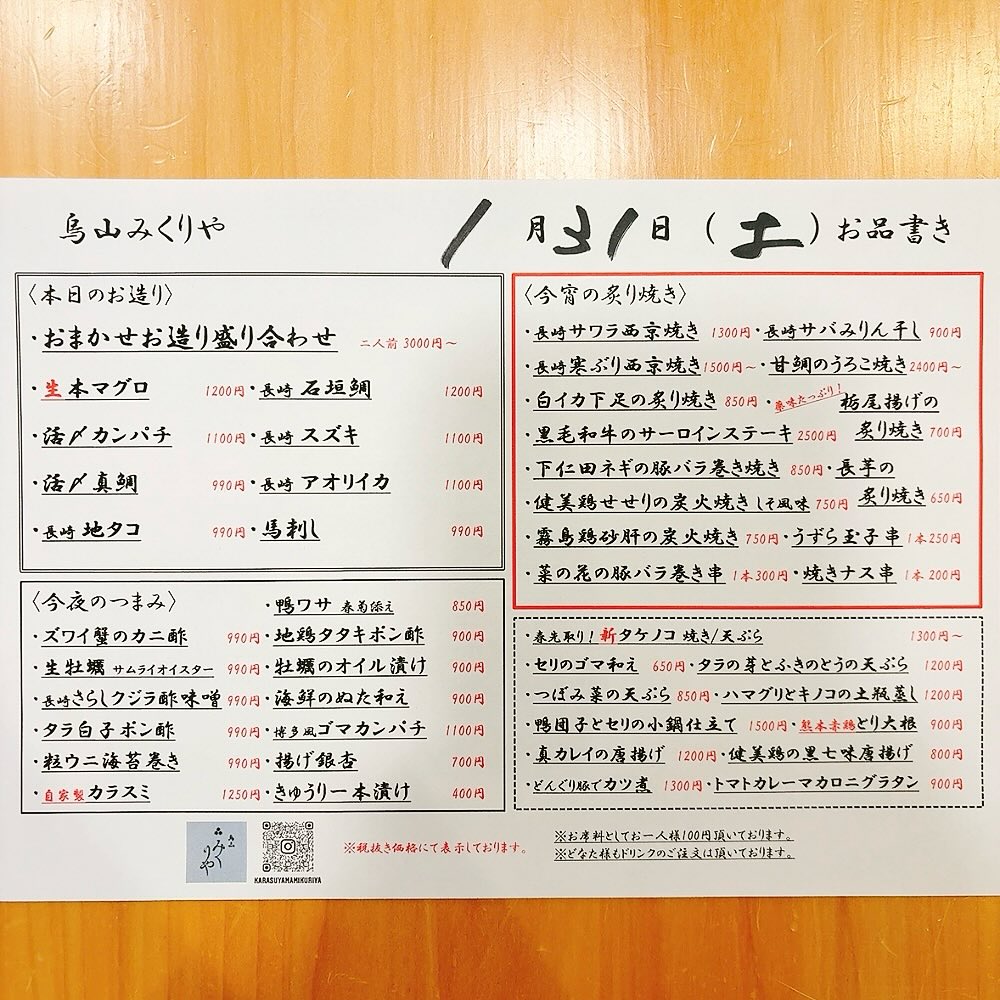 烏山みくりや 1月31日(土)お品書き
〈本日のお造り〉
・おまかせお造り盛り合わせ 二人前 3000円〜
・生本マグロ 1200円・長崎 石垣鯛 1200円
・活〆カンパチ 1100円・長崎 スズキ 1100円
・活〆真鯛 990円・長崎 アオリイカ 1100円
・長崎 地タコ 990円・馬刺し 990円
〈今夜のつまみ〉 ・鴨ワサ 春菊添え 850円
・ズワイ蟹のカニ酢 990円・地鶏タタキポン酢 900円
・生牡蠣 サムライオイスター 990円・牡蠣のオイル漬け 900円
・長崎さらしクジラ酢味噌 990円・海鮮のぬた和え 900円
・タラ白子ポン酢 990円・博多風ゴマカンパチ 1100円
・粒ウニ海苔巻き 990円・揚げ銀杏 700円
・自家製カラスミ 1250円・きゅうり一本漬け 400円
〈今宵の炙り焼き〉
・長崎サワラ西京焼き 1300円・長崎サバみりん干し 900円
・長崎寒ぶり西京焼き1500円〜・甘鯛のうろこ焼き2400円〜
・白イカ下足の炙り焼き 850円・薬味たっぷり!栃尾揚げの
・黒毛和牛のサーロインステーキ 2500円 炙り焼き 700円
・下仁田ネギの豚バラ巻き焼き 850円・長芋の
・健美鶏せせりの炭火焼き しそ風味 750円 炙り焼き 650円
・霧島鶏砂肝の炭火焼き 750円・うずら玉子串 1本250円
・菜の花の豚バラ巻き串 1本300円・焼きナス串 1本200円
・春先取り!新タケノコ 焼き/天ぷら 1300円〜
・セリのゴマ和え 650円・タラの芽とふきのとうの天ぷら 1200円
・つぼみ菜の天ぷら 850円・ハマグリとキノコの土瓶蒸し 1200円
・鴨団子とセリの小鍋仕立て 1500円・熊本赤鶏とり大根 900円
・真カレイの唐揚げ 1200円・健美鶏の黒七味唐揚げ 800円
・どんぐり豚でカツ煮 1300円・トマトカレーマカロニグラタン 900円
みくりや
KARASUYAMAMIKURIYA
※税抜き価格にて表示しております。
※お席料としてお一人様100円頂いております。
※どなた様もドリンクのご注文は頂いております。